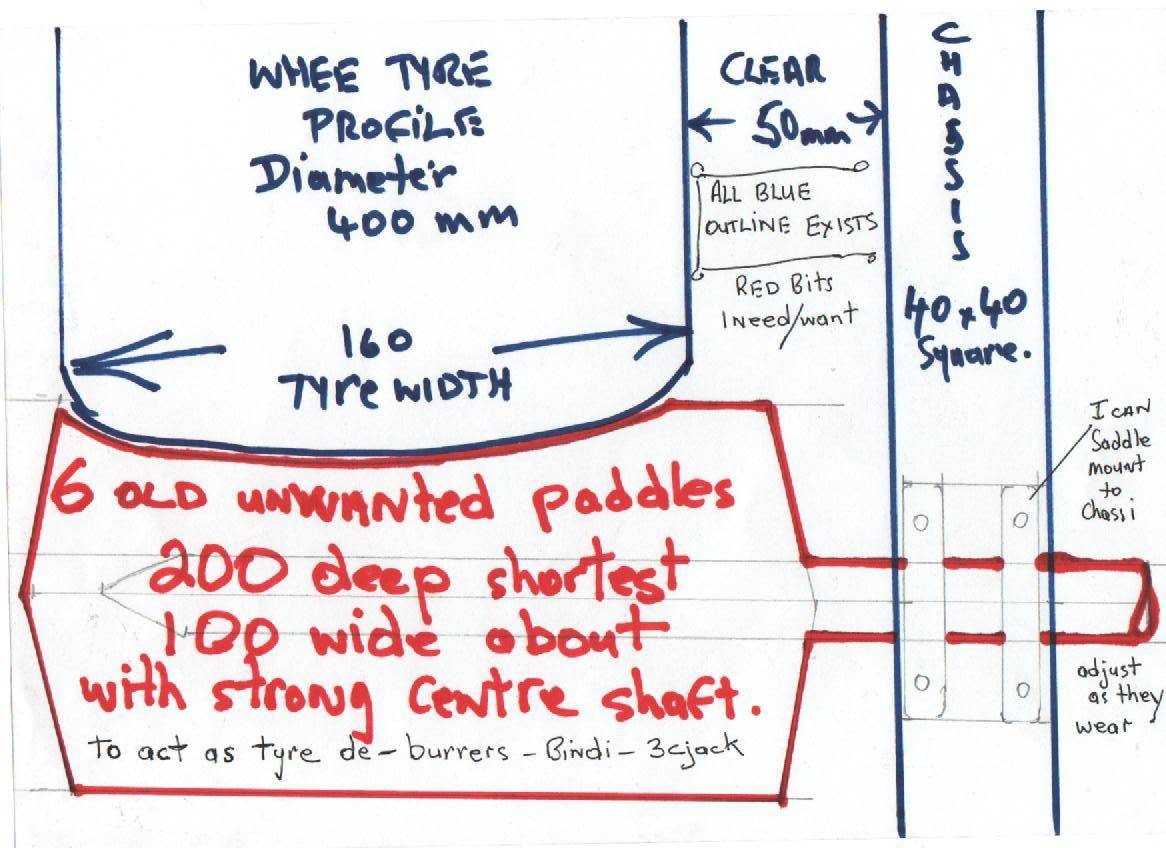 WHEE TYRE
PROFILE
Diameter
400 mm
CLEAR
50mm
CHASSIS
ALL BLUE
OUTLINE EXISTS
RED Bits
I need/want
40 x 40
Square.
160
Tyre WIDTH
I CAN
Saddle
mount
to
Chassi
6 OLD UNWANTED paddles
200 deep shortest
100 wide about
with strong centre shaft.
To act as tyre de-burrers - Bindi - 3cjack
adjust
as they
wear